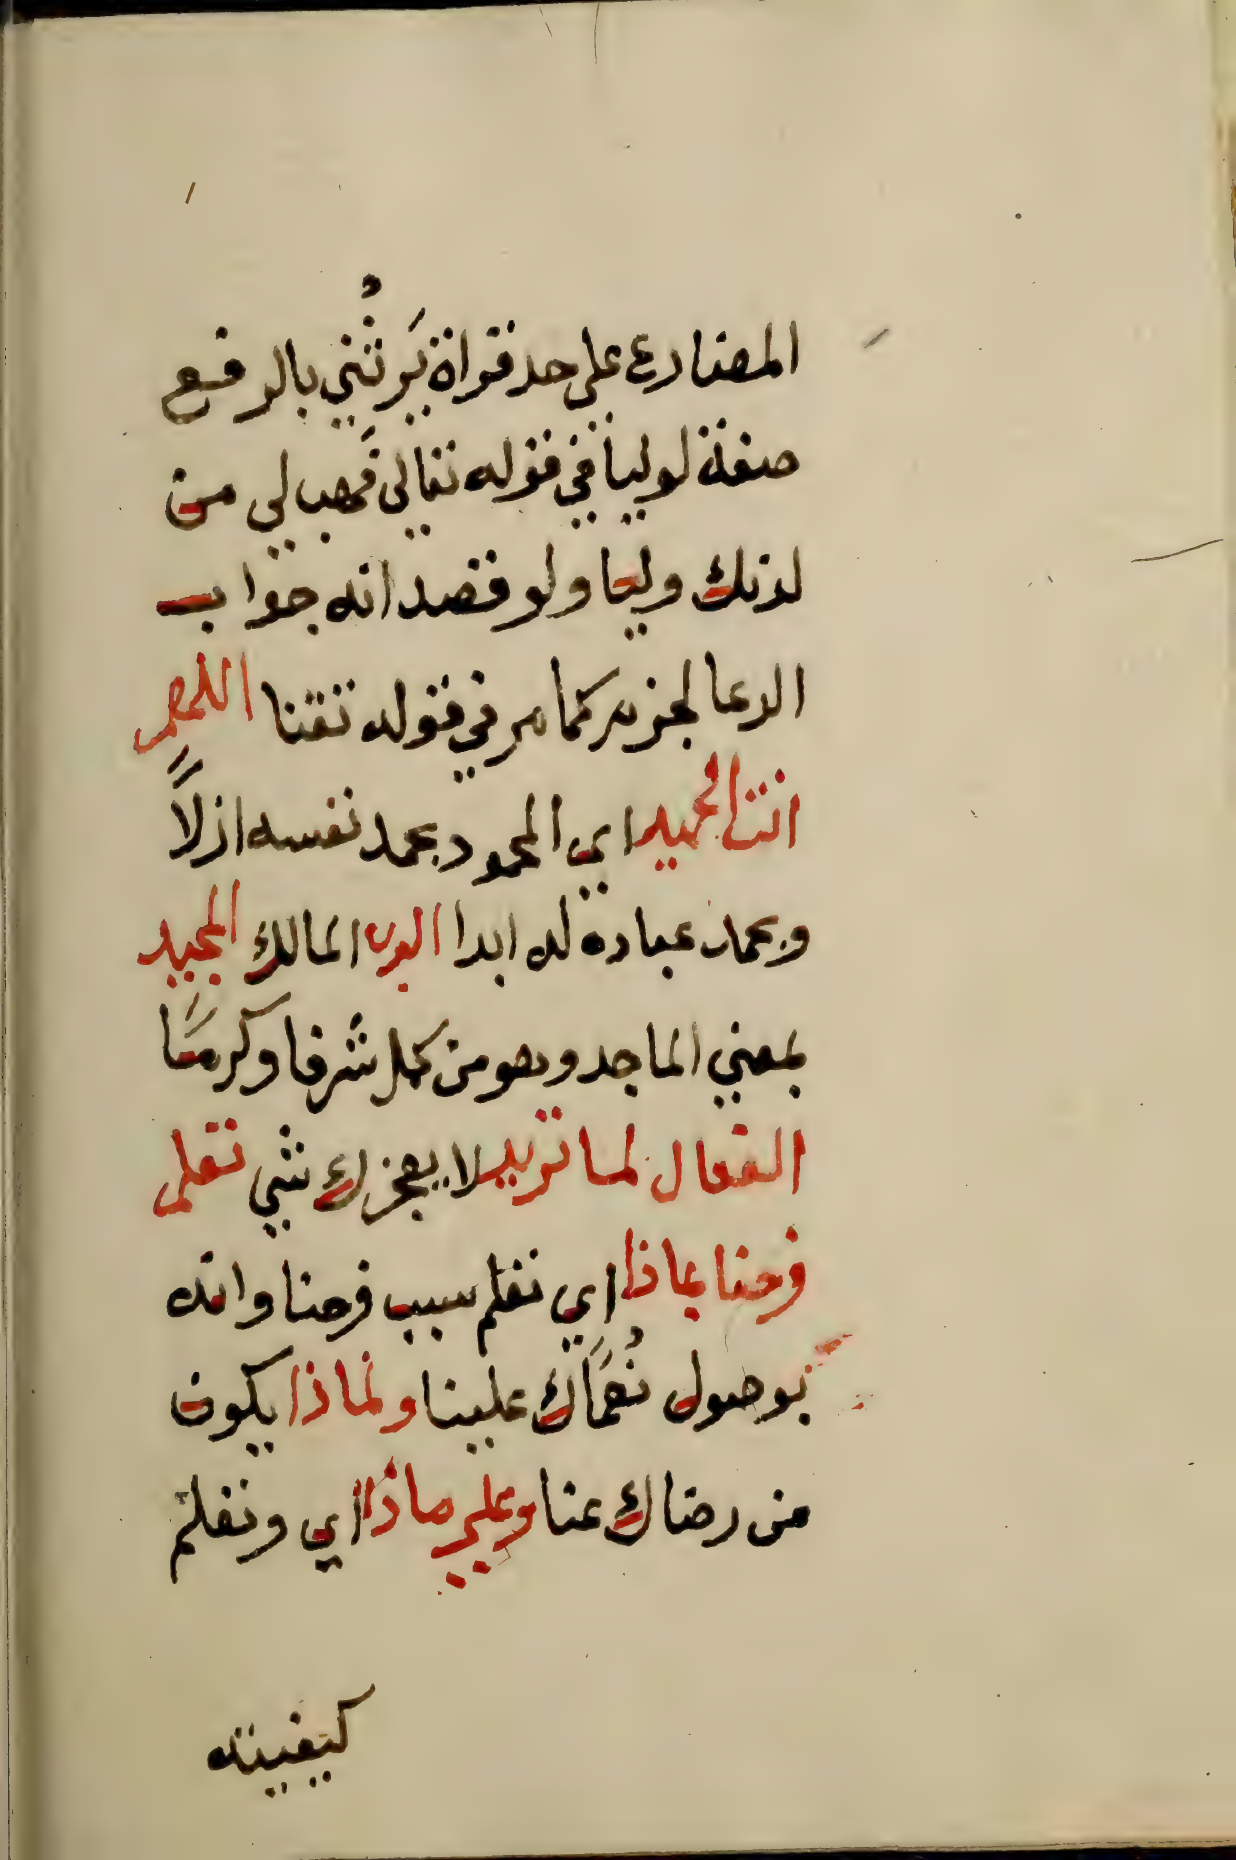 المضارع على حد قراة يَرثُني بالرفع
صفة لوليا في قوله تعالى فَهب لي من
لدنك وليا ولو قصد انه جواب
الدعا لجزم كما مر في قوله تقنا اللهم
انت الحميد اي المحمود بحمد نفسه ازلاً
وبحمد عباده له ابدا الرب المالك المجيد
بمعني الماجد وهو من كمل شرفا وكرمًا
الفعال لما تريد لا يعجزك شي تعلم
فرحنا بماذا اي تعلم سبب فرحنا وانه
بوصول نُعمَاك علينا ولماذا يكون
من رضاك عنا وعلي ماذا اي وتعلم
كيفيته